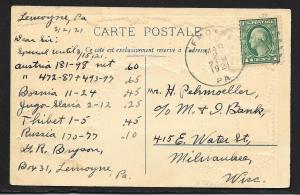 Lemoyne, Pa
4/2/21
CARTE POSTALE
Ce côté est exclusivement réservé à l'adresse
Dear Sir:
Special until 5/15/21.
Austria 181-98 net .60
" 472-87+493-97 .65
Bosnia 11-24 .45
Jugo Slavia 2-12 .25
Thibet 1-5 .45
Russia 170-77 .10
G. R. Bryson,
Box 31, Lemoyne, Pa.
PA.
Mr. H. Pehmoeller,
c/o M. & I. Bank,
415 E. Water St,
Milwaukee,
Wisc.